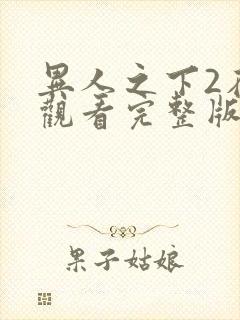 異人之下2
觀看完整版
果子姑娘